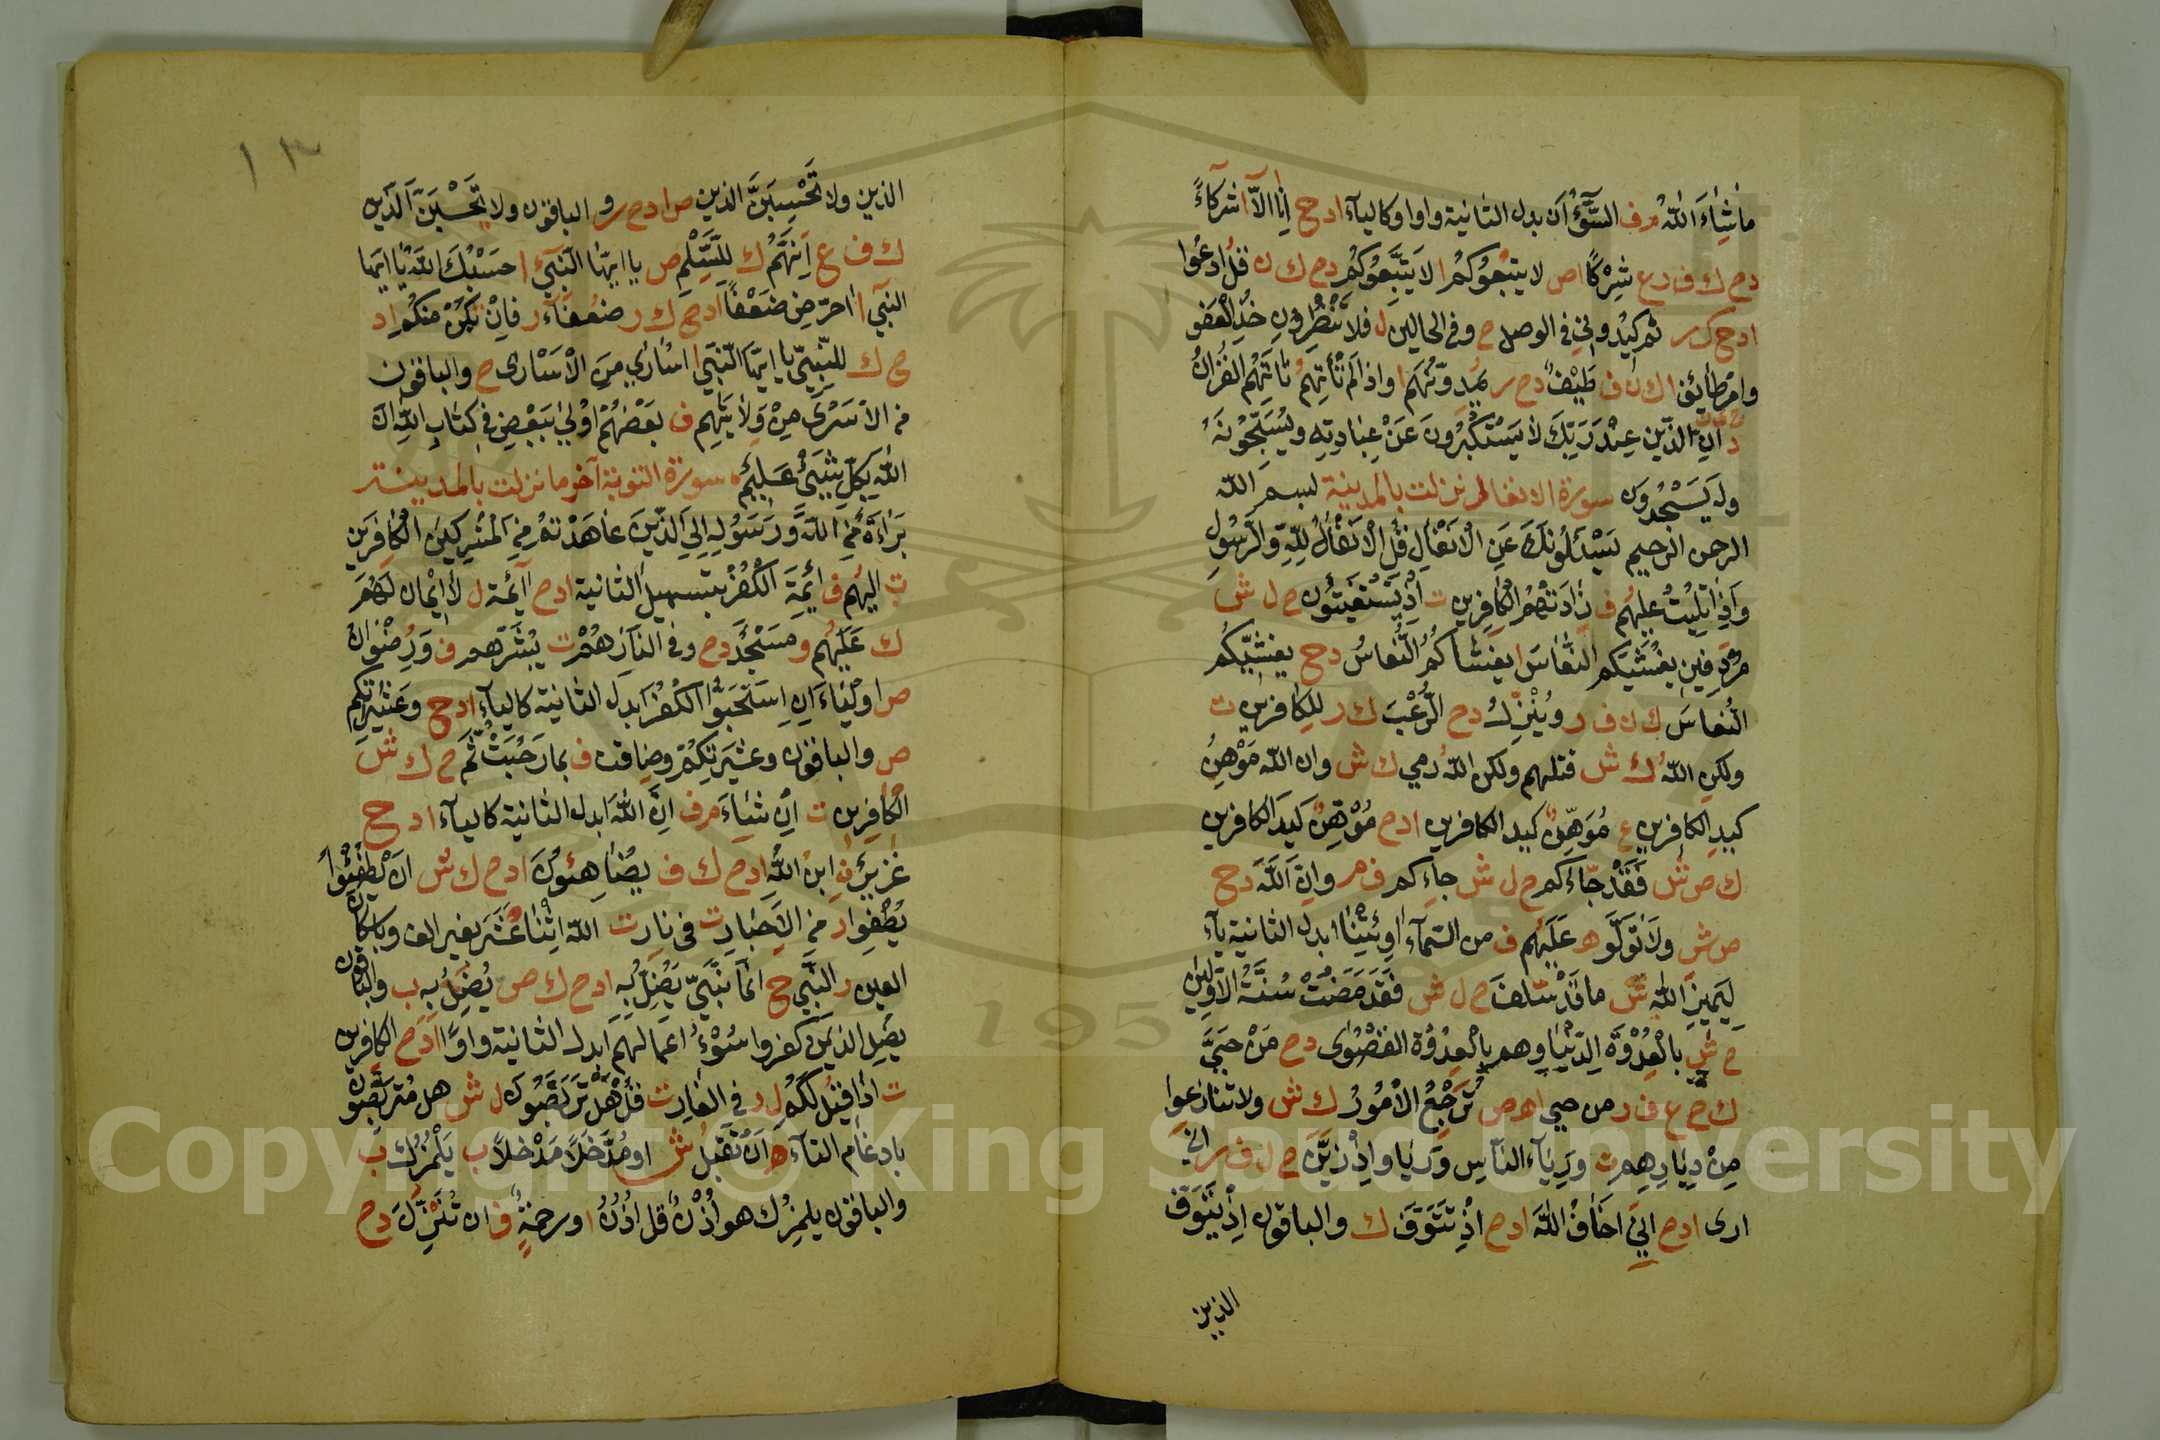 ما شاء الله م ف السوء ان بدل الثانية واوا وكالياء ا د ح ح انا الا ا شركاء
د ح ك ف د ع شركا ا ص لا يتبعوكم ا لا يتبعوكم د ح ك ن قل ادعوا
ا د ح ك ر ثم كيدوني في الوصل ح وفي الحالين ل فلا تنظرون خذ العفو
وامر طائف ا ك ن ف طيف د ح ر يمدونهم ا واذا لم تأتهم تاتهم القران
د ان الذين عند ربك لا يستكبرون عن عبادته ويسبحونه
وله يسجدون سورة الانفال نزلت بالمدينة بسم الله
الرحمن الرحيم يسئلونك عن الانفال قل الانفال لله والرسول
واذا تليت عليهم ف زادتهم الكافرين ت اذ تستغيثون ح ل ش
مردفين يغشيكم النعاس ا يغشاكم النعاس د ح ح يغشيكم
النعاس ك ن ف ر وينزل د ح الرعب ك ر للكافرين ت
ولكن الله ك ش قتلهم ولكن الله رمى ك ش وان الله موهن
كيد الكافرين ع موهن كيد الكافرين ا د ح موهن كيد الكافرين
ك ص ش فقد جاءكم ح ل ش جاءكم ف م وان الله د ح ح
ص ش ولا تولوا ه عليهم ف من السماء او ئتنا ابدل الثانية ياء
ليميز الله ش ما قد سلف ح ل ش فقد مضت سنة الاولين
ح ش بالعدوة الدنيا وهم بالعدوة القصوى د ح من حي
ك ح ع ف ر من حيي ا ه ص ترجع الامور ك ش ولا تنازعوا
من ديارهم ت ورياء الناس ورياء واذ زين ح ل ف ر اني
ارى ا د ح اني اخاف الله ا د ح اذ تتوفى ك والباقون اذ يتوفى
الذين
١٣
الذين ولا تحسبن الذين ص ا د ح ر و الباقون ولا يحسبن الذين
ك ف ع انهم ك للسلم ص يا ايها النبيء ا حسبك الله يا ايها
النبيء ا احرض ضعفا ا د ح ك ر ضعفاء ر فان تكن منكم ا د
ح ك للنبي يا ايها النبيء ا اسارى من الاسارى ح والباقون
من الاسرى من ولايتهم ف بعضهم اولى ببعض في كتاب الله ان
الله بكل شيء عليم سورة التوبة آخر ما نزلت بالمدينة
براءة من الله ورسوله الى الذين عاهدتم من المشركين الكافرين
ت اليهم ف ائمة الكفر بتسهيل الثانية ا د ح آئمة ل لا ايمان لهم
ك عليهم و مسجد د ح وفي النار هم ت يبشرهم ف ورضوان
ص اولياء ان استحبوا الكفر ابدل الثانية كالياء ا د ح ح وعشيرتكم
ص والباقون وعشيرتكم وضاقت ف بما رحبت ثم ح ك ش
الكافرين ت ان شاء م ف ان الله ابدل الثانية كالياء ا د ح ح
عزير ن ابن الله ا د ح ك ف يضاهئون ا د ح ك ش ان يطفئوا
يطفوا ر من الاحبار ت في نار ت الله اثنا عشر بغير الف وباسكان
العين ر النبي ح انما نبي يضل به ا د ح ك ص يضل به ب والباقون
يضل الذين كفروا سوء اعمالهم ابدل الثانية واوا ا د ح الكافرين
ت اذا قيل لكم ل ر في الغار ت قل هل تربصون ل ش هل متربصون
بادغام التاء ه ان تقبل ش او مدخلا مدخلا ب يلمزك ب
والباقون يلمزك هو اذن قل اذن ا ورحمة ف ان تنزل د ح
Copyright © King Saud University
1957